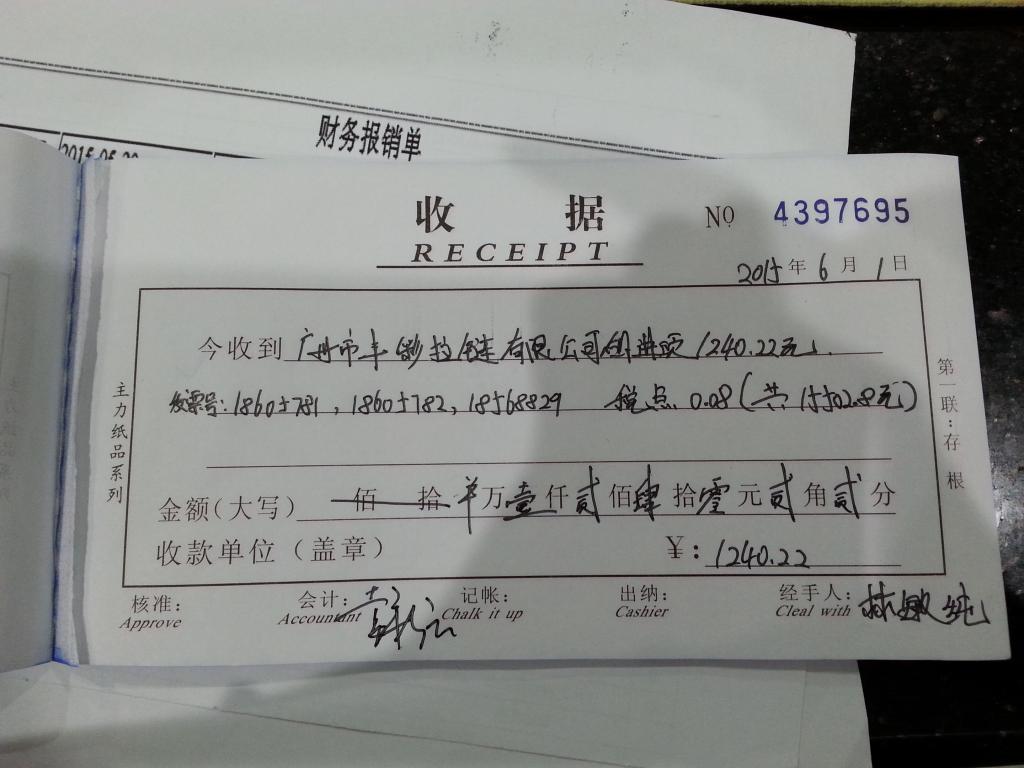 财务报销单
收 据
RECEIPT
№ 4397695
2015年6月1日
今收到 广州市丰 有限公司 进项1240.22元.
发票号:18605781,18605782,18568829 税点 0.08(共15502.8元)
金额(大写) 佰 拾 万壹仟贰佰肆拾零元贰角贰分
收款单位(盖章) ¥:1240.22
核准: 会计: 记帐: 出纳: 经手人:林敏纯
Approve Accountant Chalk it up Cashier Cleal with
主力纸品系列
第一联:存根